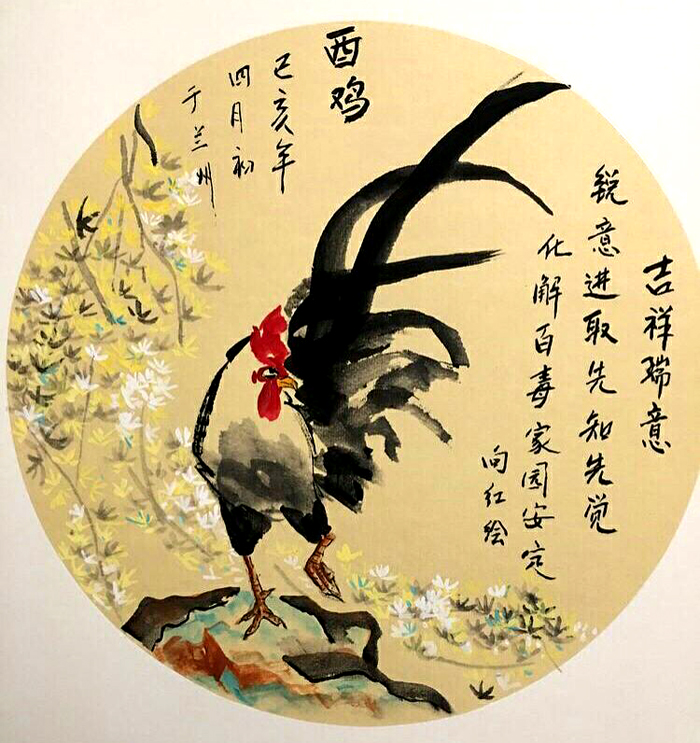 吉祥瑞意
锐意进取先知先觉
化解百毒家园安定
向红绘
酉鸡
己亥年
四月初
于兰州